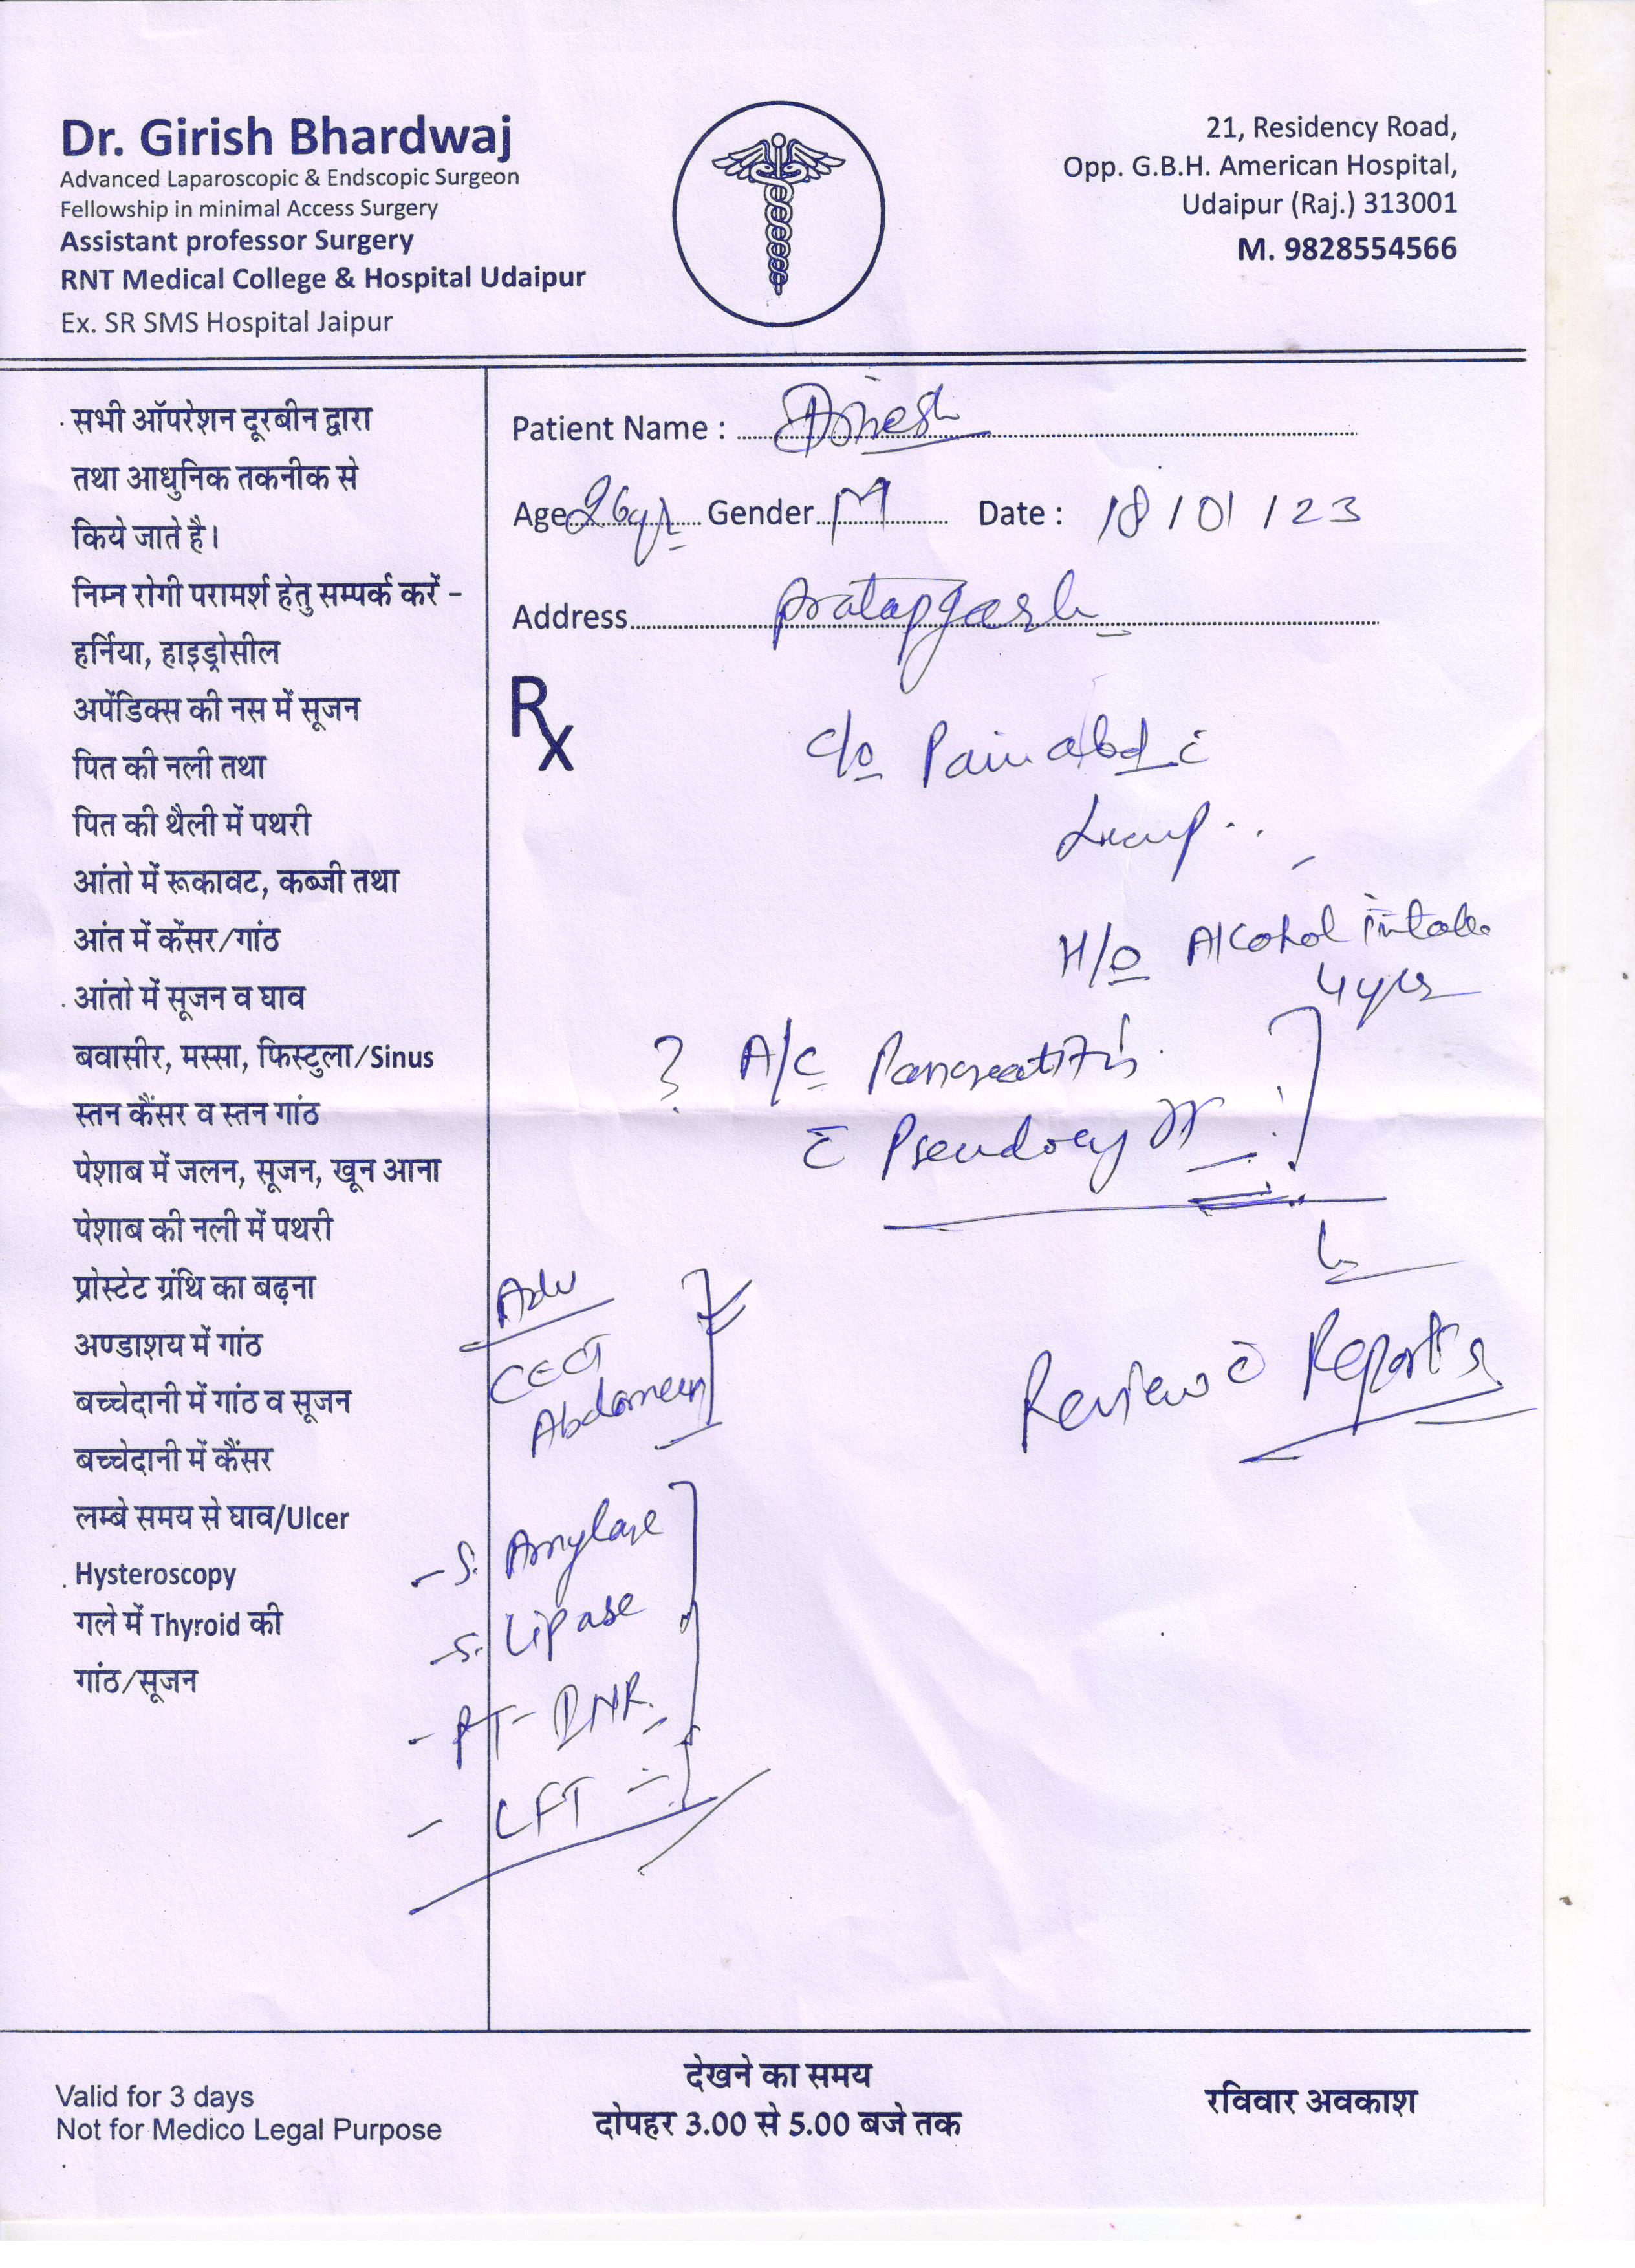 Dr. Girish Bhardwaj
Advanced Laparoscopic & Endscopic Surgeon
Fellowship in minimal Access Surgery
Assistant professor Surgery
RNT Medical College & Hospital Udaipur
Ex. SR SMS Hospital Jaipur
21, Residency Road,
Opp. G.B.H. American Hospital,
Udaipur (Raj.) 313001
M. 9828554566
सभी ऑपरेशन दूरबीन द्वारा
तथा आधुनिक तकनीक से
किये जाते है।
निम्न रोगी परामर्श हेतु सम्पर्क करें -
हर्निया, हाइड्रोसील
अपेंडिक्स की नस में सूजन
पित की नली तथा
पित की थैली में पथरी
आंतो में रूकावट, कब्जी तथा
आंत में केंसर/गांठ
आंतो में सूजन व घाव
बवासीर, मस्सा, फिस्टुला/Sinus
स्तन कैंसर व स्तन गांठ
पेशाब में जलन, सूजन, खून आना
पेशाब की नली में पथरी
प्रोस्टेट ग्रंथि का बढ़ना
अण्डाशय में गांठ
बच्चेदानी में गांठ व सूजन
बच्चेदानी में कैंसर
लम्बे समय से घाव/Ulcer
Hysteroscopy
गले में Thyroid की
गांठ/सूजन
Patient Name : Dinesh
Age 26yr Gender M Date : 18/01/23
Address Pratapgarh
Rx
c/o Pain abd c̄
Lump
H/o Alcohol intake
4 yrs
? A/c Pancreatitis
c̄ Pseudocyst
Adv
CECT
Abdomen
Review c̄ Reports
- S. Amylase
- S. Lipase
- PT-INR
- LFT
Valid for 3 days
Not for Medico Legal Purpose
देखने का समय
दोपहर 3.00 से 5.00 बजे तक
रविवार अवकाश